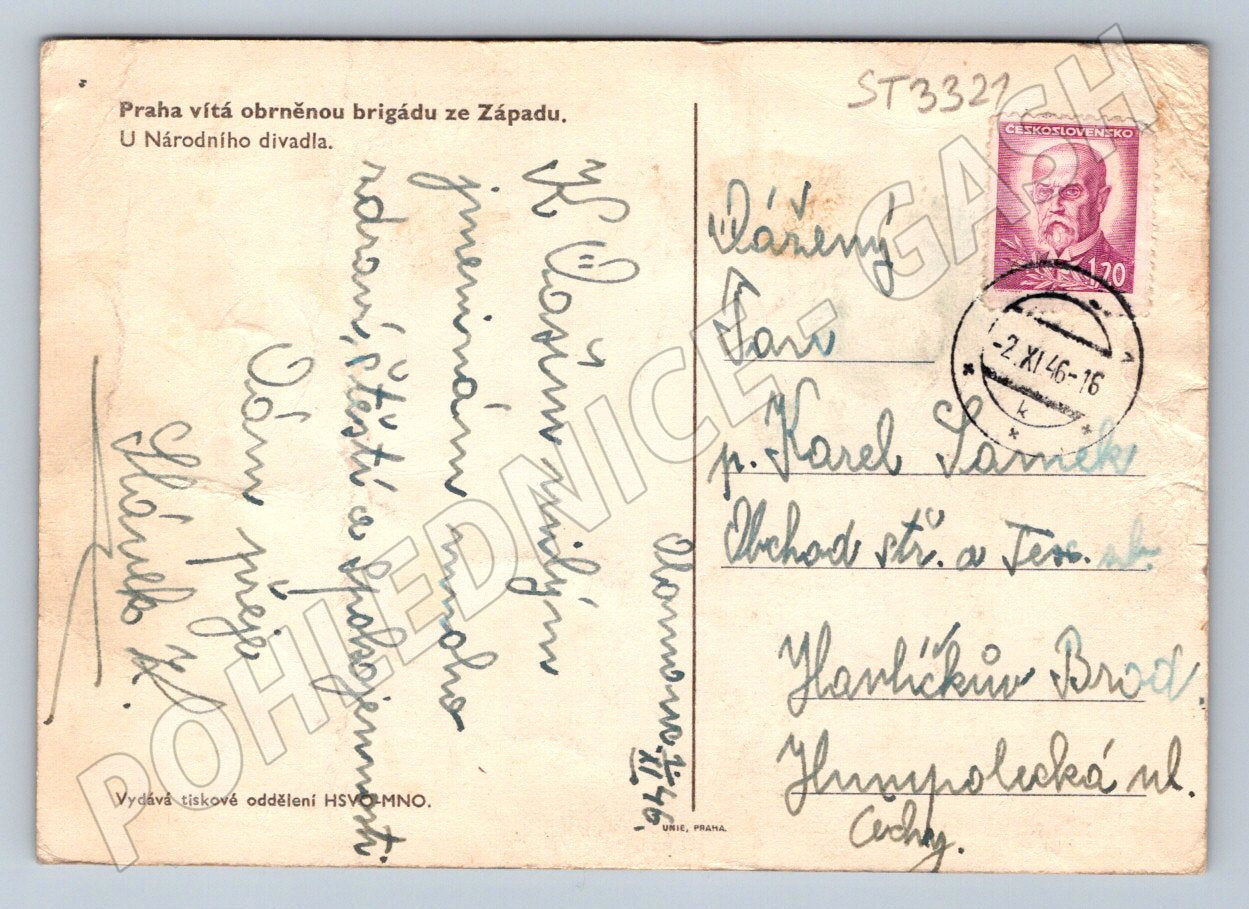 Praha vítá obrněnou brigádu ze Západu.
U Národního divadla.
K Vašim milým
jmeninám mnoho
zdraví, štěstí a spokojenosti
Vám přeje
Hánek K.
1./XI. 46.
Vydává tiskové oddělení HSVO-MNO.
UNIE, PRAHA.
ST3321
ČESKOSLOVENSKO
1,20
-2.XI.46-16
k
Vážený
Pan
p. Karel Samek
Obchod stř. a Tex.
Havlíčkův Brod.
Humpolecká ul.
Čechy.
POHLEDNICE - GASH